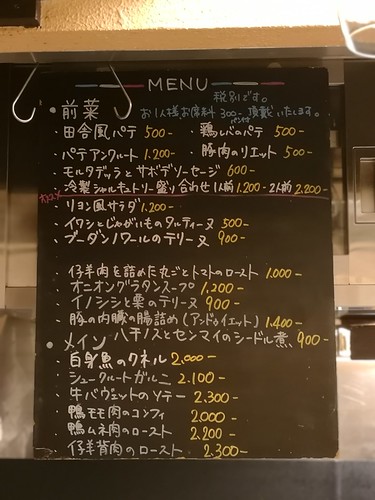 MENU
税別です。
・前菜 お1人様お席料300-頂戴いたします。
パン付
・田舎風パテ 500- ・鶏レバのパテ 500-
・パテアンクルート 1.200- ・豚肉のリエット 500-
・モルタデッラとサボデソーセージ 600-
・冷製シャルキュトリー盛り合わせ 1人前1.200- 2人前2.200-
・リヨン風サラダ 1.200-
・イワシとじゃがいものタルティーヌ 500-
・ブーダンノワールのテリーヌ 900-
・仔羊肉を詰めた丸ごとトマトのロースト 1.000-
・オニオングラタンスープ 1.200-
・イノシシと栗のテリーヌ 900-
・豚の内臓の腸詰め(アンドゥイエット) 1.400-
・ハチノスとセンマイのシードル煮 900-
・メイン
・白身魚のクネル 2.000-
・シュークルートガルニ 2.100-
・牛バヴェットのソテー 2.300-
・鴨モモ肉のコンフィ 2.000-
・鴨ムネ肉のロースト 2.200-
・仔羊背肉のロースト 2.300-